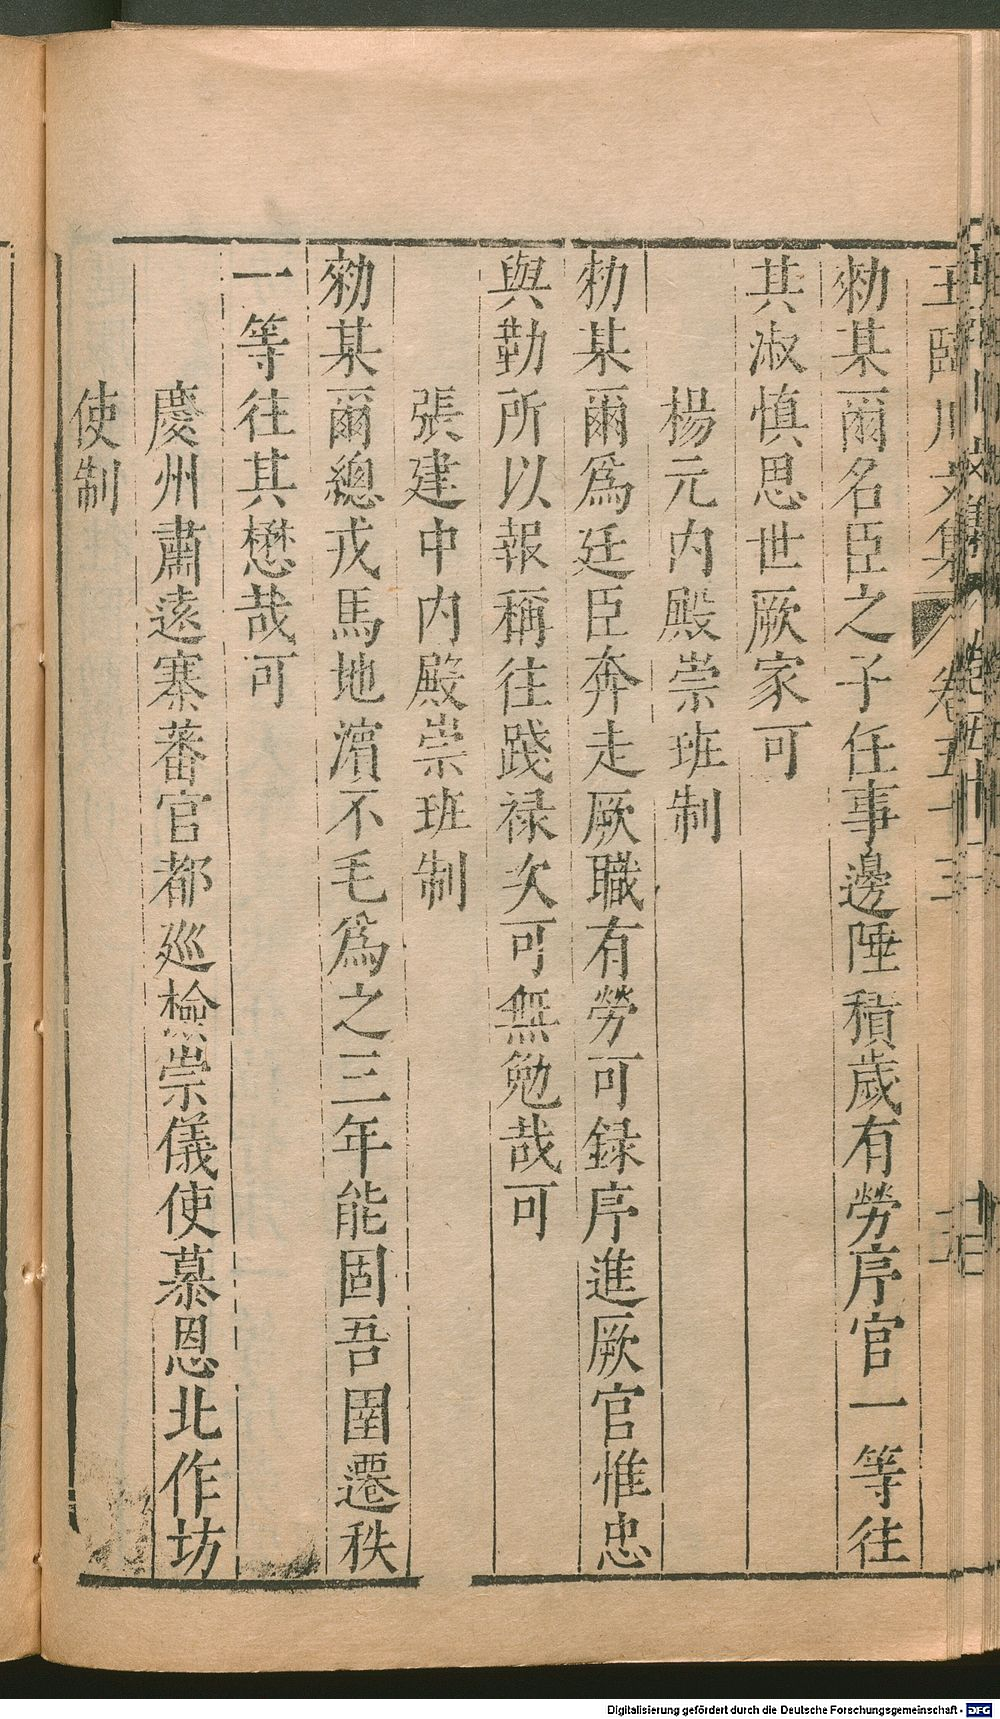 王臨川文集 卷五十三
勑某爾名臣之子任事邊陲積歲有勞序官一等往
其淑慎思世厥家可
楊元内殿崇班制
勑某爾爲廷臣奔走厥職有勞可録序進厥官惟忠
與勤所以報稱往踐禄次可無勉哉可
張建中内殿崇班制
勑某爾總戎馬地濵不毛爲之三年能固吾圉遷秩
一等往其懋哉可
慶州肅遠寨蕃官都廵檢崇儀使慕恩北作坊
使制
Digitalisierung gefördert durch die Deutsche Forschungsgemeinschaft - DFG